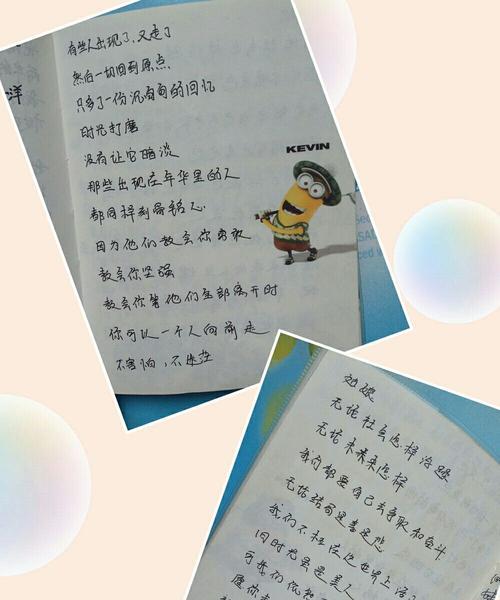 洋
有些人出现了，又走了
然后一切回到原点
只多了一份沉甸甸的回忆
时光打磨
没有让它暗淡
那些出现在年华里的人
都同样刻骨铭心
因为他们教会你勇敢
教会你坚强
教会你等他们全部离开时
你可以一个人向前走
不害怕，不迷茫
KEVIN
无论社会怎样
无论未来怎样
我们都要自己去争取和奋斗
无论结局是喜是悲
我们不枉在这世界上
旧时光是美人
可我们
愿你